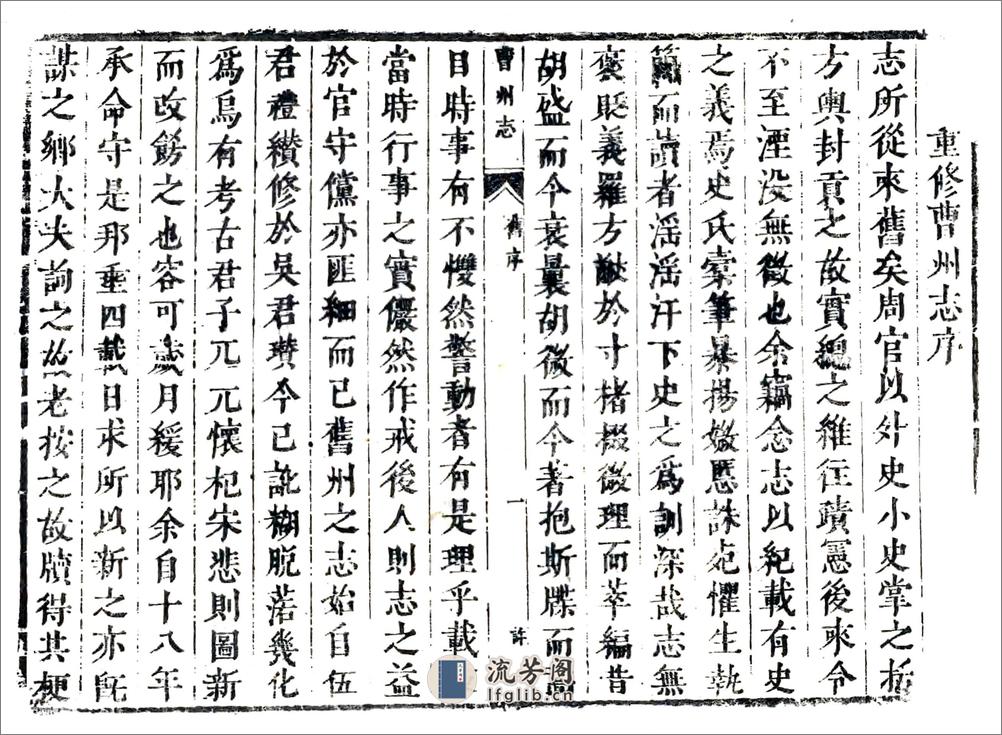 重修曹州志序
志所從來舊矣周官以外史小史掌之析
方輿封貢之故實總之維往蹟憲後來令
不至湮没無徵也余竊念志以紀載有史
之義焉史氏彙筆暴揚媺慝誅 懼生執
簡而讀者滛滛汗下史之爲訓深哉志無
褒貶義羅方猷於寸楮掇微理而萃編昔
胡盛而今衰曩胡微而今著抱斯牒而
曹州志
舊序
一
許
目時事有不戄然警動者有是理乎載
當時行事之實儼然作戒後人則志之益
於官守儻亦匪細而已舊州之志始自伍
君禮纘修於吳君瓚今已訛糊脱落幾化
爲烏有考古君子兀兀懷杞宋悲則圖新
而改餝之也容可歲月緩耶余自十八年
承命守是邦垂四載日求所以新之亦旣
謀之鄉大夫詢之故老按之故牘得其梗
流芳阁
lfglib.cn